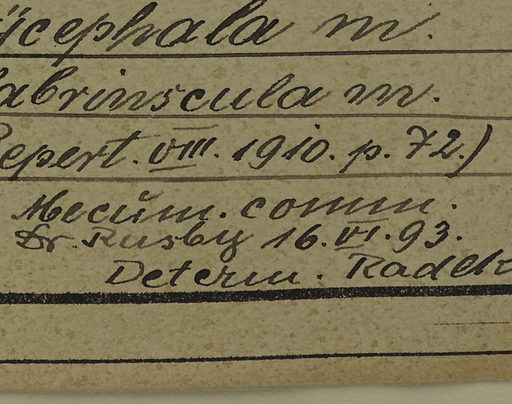 ÿcephala m.
abrinscula m.
Repert. VIII. 1910. p. 72.)
Mecum. comm.
Dr. Rusby 16. VI. 93.
Determ. Radlk